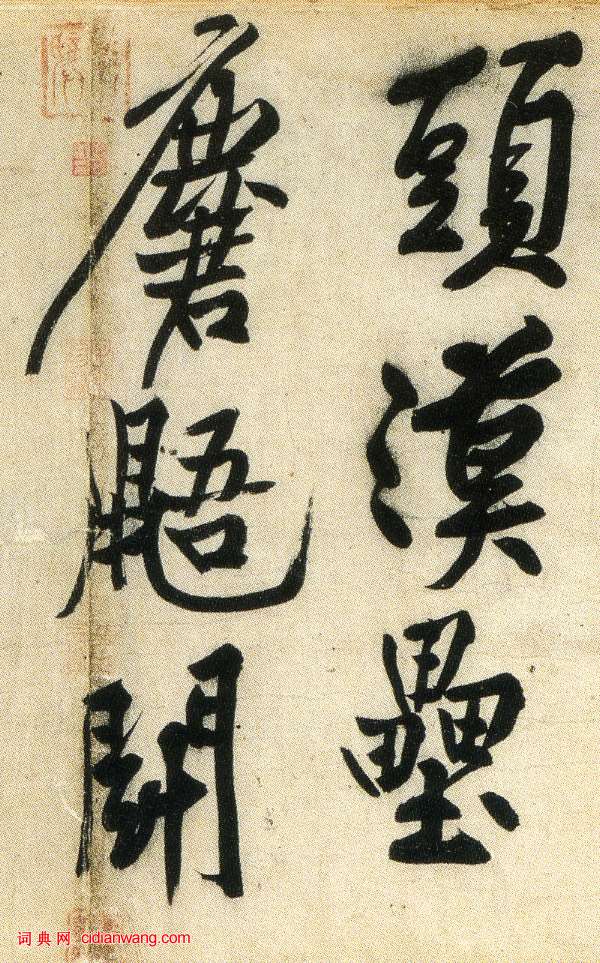 頭漢壘
麏鼯鬥
词典网 cidianwang.com